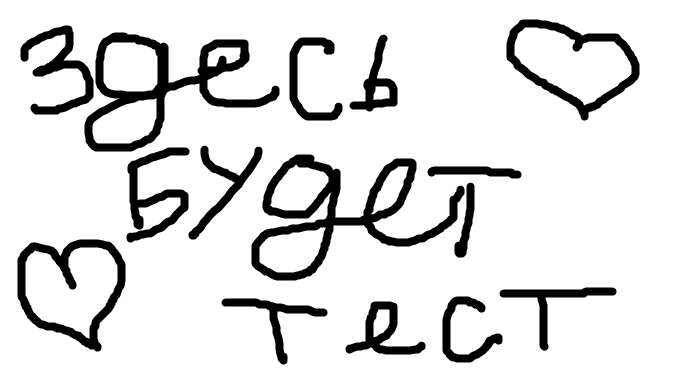 Здесь
Будет
тест